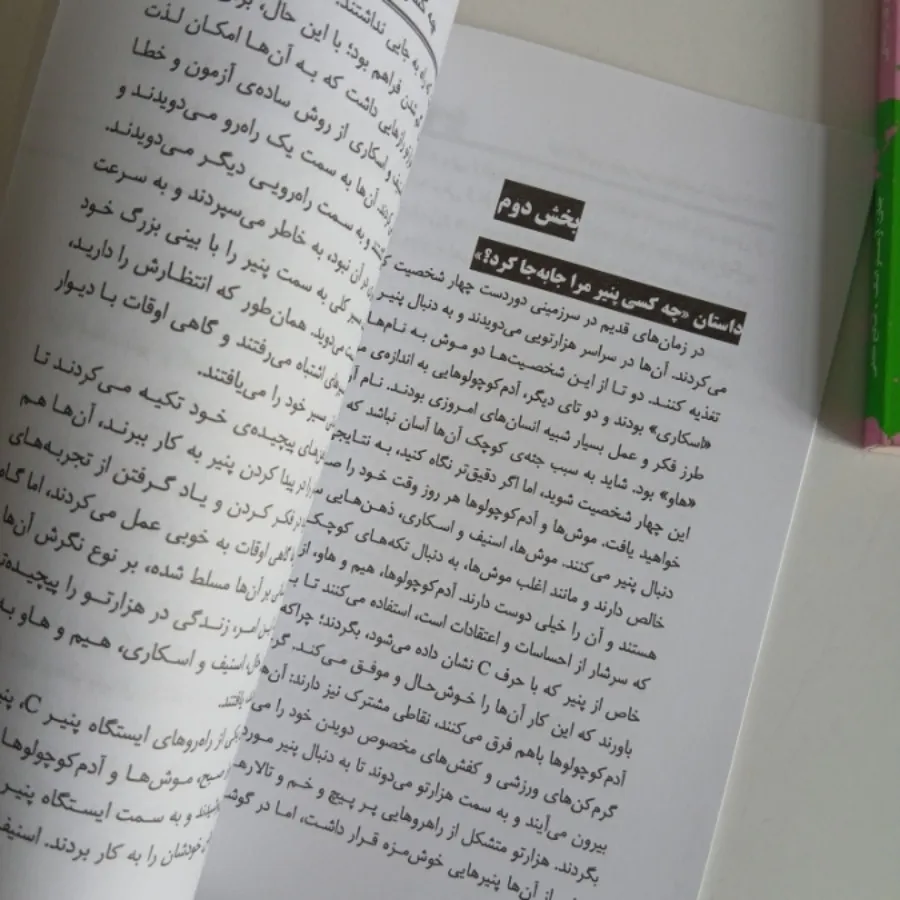 بخش دوم
داستان «چه کسی پنیر مرا جابه‌جا کرد؟»
در زمان‌های قدیم در سرزمینی دوردست چهار شخصیت
می‌کردند. آن‌ها در سراسر هزارتویی می‌دویدند و به دنبال پنیر
تغذیه کنند. دو تا از این شخصیت‌ها دو موش به نام‌ها
«اسکاری» بودند و دو تای دیگر، آدم‌کوچولوهایی به اندازه‌ی
طرز فکر و عمل بسیار شبیه انسان‌های امروزی بودند. نام آن
«هاو» بود. شاید به سبب جثه‌ی کوچک آن‌ها آسان نباشد که
این چهار شخصیت شوید، اما اگر دقیق‌تر نگاه کنید، به نتایجی
خواهید یافت. موش‌ها و آدم‌کوچولوها هر روز وقت خود را
دنبال پنیر می‌کنند. موش‌ها، اسنیف و اسکاری، ذهن‌هایی
خالص دارند و مانند اغلب موش‌ها، به دنبال تکه‌های کوچک
هستند و آن را خیلی دوست دارند. آدم‌کوچولوها، هیم و هاو، از
که سرشار از احساسات و اعتقادات است، استفاده می‌کنند تا
خاص از پنیر که با حرف C نشان داده می‌شود، بگردند؛ چراکه
باورند که این کار آن‌ها را خوش‌حال و موفق می‌کند.
آدم‌کوچولوها باهم فرق می‌کنند، نقاطی مشترک نیز دارند: آن‌ها
گرم‌کن‌های ورزشی و کفش‌های مخصوص دویدن خود را
بیرون می‌آیند و به سمت هزارتو می‌دوند تا به دنبال پنیر مورد
بگردند. هزارتو متشکل از راهروهایی پر پیچ و خم و تالارها
از آن‌ها پنیرهایی خوش‌مزه قرار داشت، اما در گوشه
راه به جایی نداشتند.
شدن فراهم بود؛ با این حال، برای
رازهایی داشت که به آن‌ها امکان لذت
و اسکاری از روش ساده‌ی آزمون و خطا
آن‌ها به سمت یک راهرو می‌دویدند و
و به سمت راهرویی دیگر می‌دویدند.
در آن نبود، به خاطر می‌سپردند و به سرعت
کلی به سمت پنیر را با بینی بزرگ خود
می‌دوید. همان‌طور که انتظارش را دارید،
اشتباه می‌رفتند و گاهی اوقات با دیوار
خود را می‌یافتند.
پیچیده‌ی خود تکیه می‌کردند تا
در پیدا کردن پنیر به کار ببرند، آن‌ها هم
فکر کردن و یاد گرفتن از تجربه‌های
گاهی اوقات به خوبی عمل می‌کردند، اما گاه
بر آن‌ها مسلط شده، بر نوع نگرش آن‌ها
این امر، زندگی در هزارتو را پیچیده‌تر
اسنیف و اسکاری، هیم و هاو به
یافتند.
یکی از راهروهای ایستگاه پنیر C، پنیر
صبح، موش‌ها و آدم‌کوچولوها
و به سمت ایستگاه پنیر
خودشان را به کار بردند. اسنیف